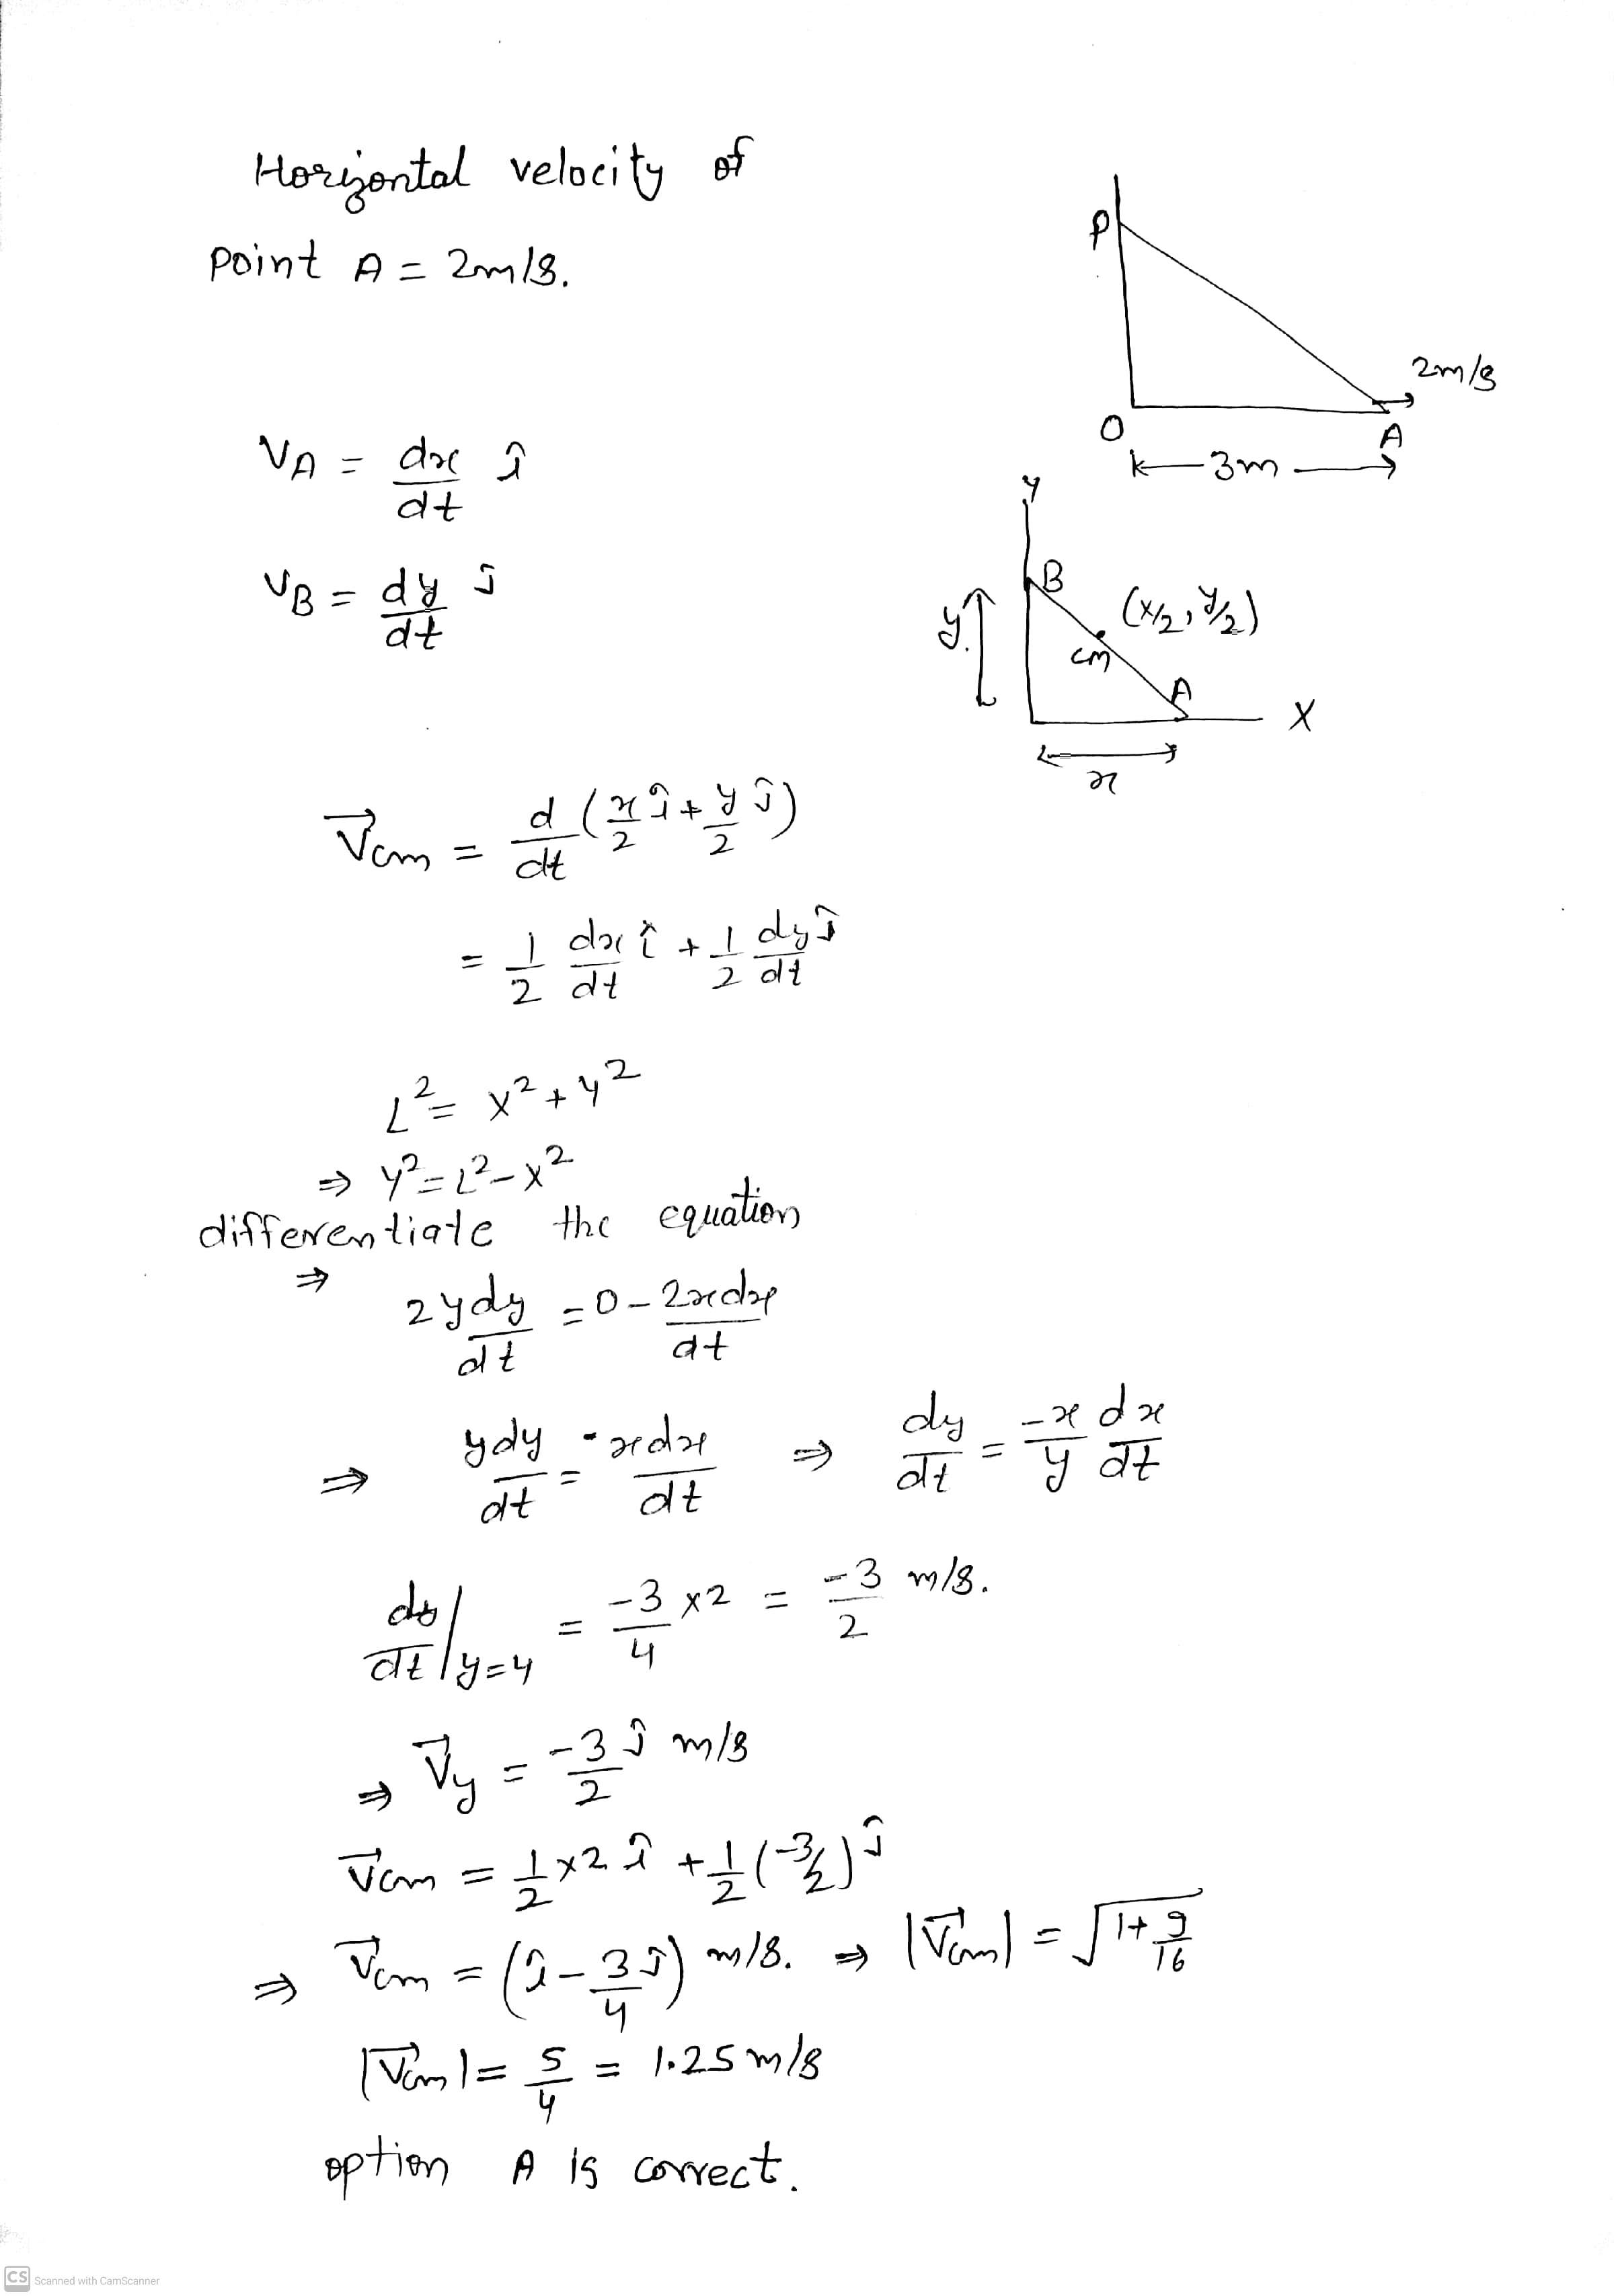 Horizontal velocity of
point A = 2m/s.
P
2m/s
O
A
3m
V_A = dx/dt î
V_B = dy/dt ĵ
y
B
(x/2, y/2)
y
cm
A
X
x
V⃗cm = d/dt (x/2 î + y/2 ĵ)
= 1/2 dx/dt î + 1/2 dy/dt ĵ
L² = x² + y²
⇒ y² = L² - x²
differentiate the equation
⇒ 2y dy/dt = 0 - 2x dx/dt
⇒ y dy/dt = -x dx/dt ⇒ dy/dt = -x/y dx/dt
dy/dt |y=4 = -3/4 × 2 = -3/2 m/s.
⇒ V⃗y = -3/2 ĵ m/s
V⃗cm = 1/2 × 2 î + 1/2 (-3/2) ĵ
⇒ V⃗cm = (î - 3/4 ĵ) m/s. ⇒ |V⃗cm| = √(1 + 9/16)
|V⃗cm| = 5/4 = 1.25 m/s
option A is correct.
CS Scanned with CamScanner